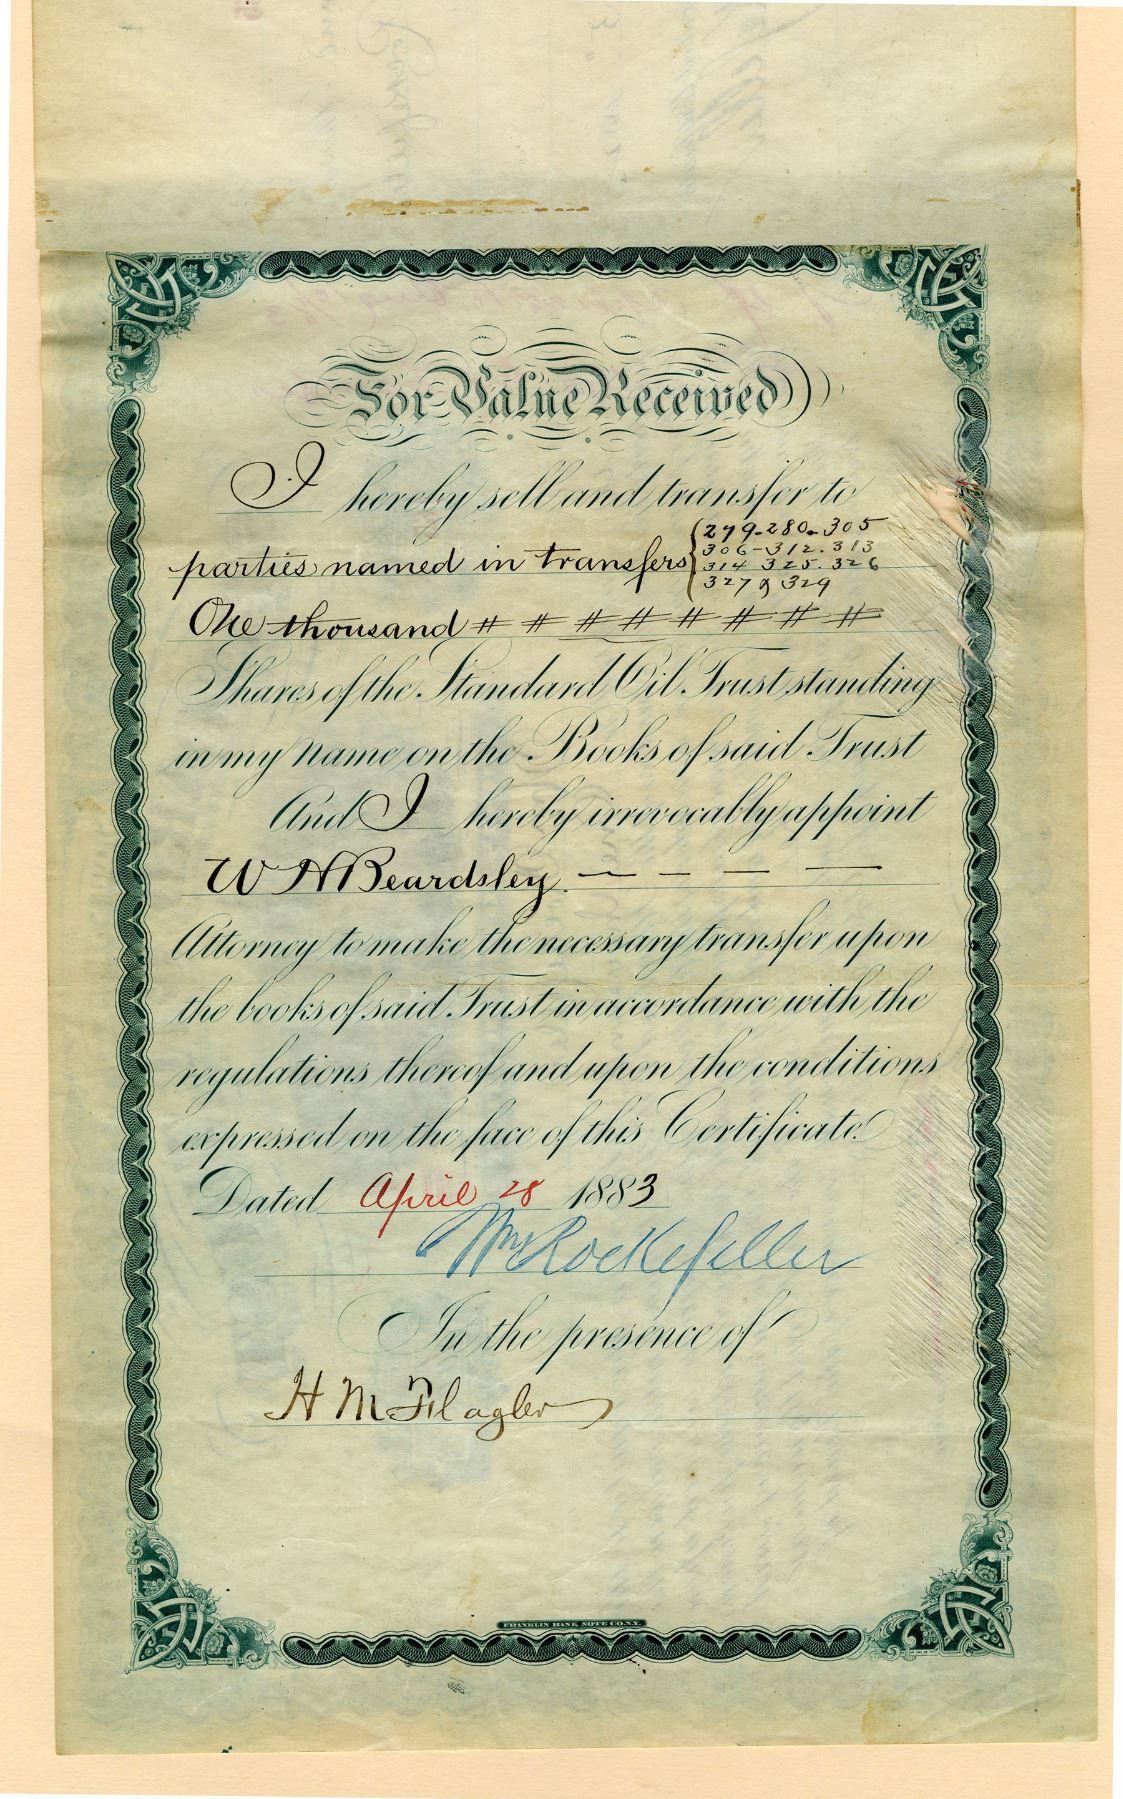 For Value Received
I hereby sell and transfer to
parties named in transfers { 279-280-305
306-312.313
314 325. 326
327 & 329
One thousand # # # # # # # #
Shares of the Standard Oil Trust standing
in my name on the Books of said Trust
And I hereby irrevocably appoint
W H Beardsley. — — — —
Attorney to make the necessary transfer upon
the books of said Trust in accordance with the
regulations thereof and upon the conditions
expressed on the face of this Certificate.
Dated April 28 1883
Wm Rockefeller
In the presence of
H M Flagler
FRANKLIN BANK NOTE CO. N.Y.